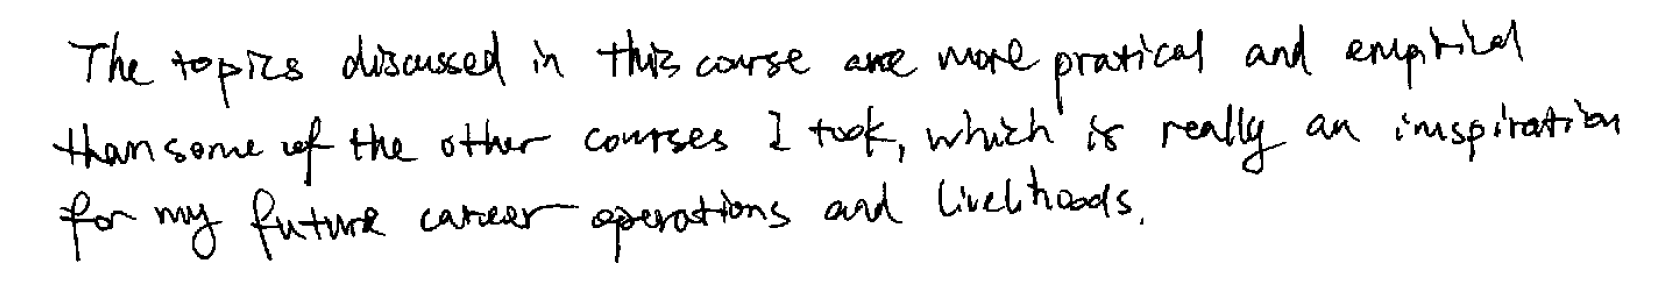 The topics discussed in this course are more pratical and empirical
than some of the other courses I took, which is really an inspiration
for my future career operations and livelihoods.